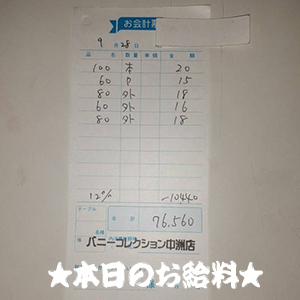 お会計票
9月28日
品名 数量 単価 金額
100 本 20
60 P 15
80 外 18
60 外 16
80 外 18
12% -10440
テーブル
合計 76,560
バニーコレクション中洲店
★本日のお給料★